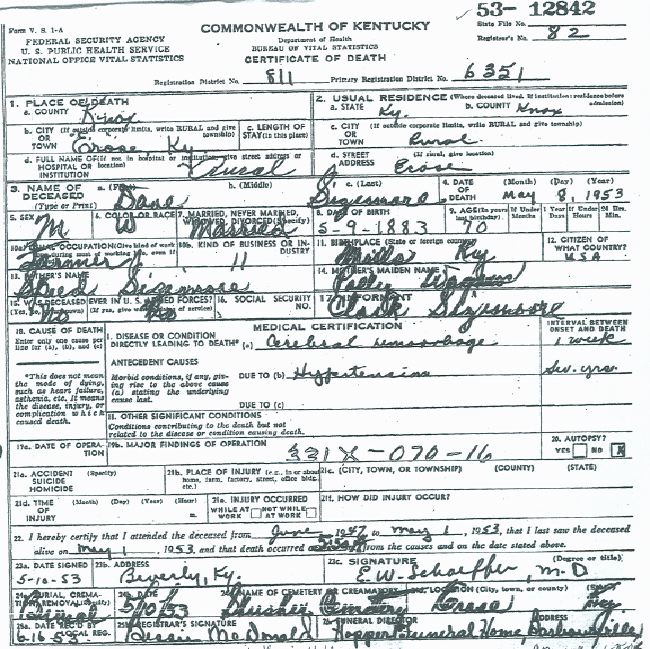 53- 12842
Form V. S. 1-A
COMMONWEALTH OF KENTUCKY
State File No.
FEDERAL SECURITY AGENCY
Department of Health
Registrar's No. 82
U. S. PUBLIC HEALTH SERVICE
BUREAU OF VITAL STATISTICS
NATIONAL OFFICE VITAL STATISTICS
CERTIFICATE OF DEATH
Registration District No. 811 Primary Registration District No. 6351
1. PLACE OF DEATH
a. COUNTY Knox
2. USUAL RESIDENCE (Where deceased lived. If institution: residence before admission)
a. STATE Ky. b. COUNTY Knox
b. CITY (If outside corporate limits, write RURAL and give township) OR TOWN Crose Ky
c. LENGTH OF STAY (in this place)
c. CITY (If outside corporate limits, write RURAL and give township) OR TOWN Rural
d. FULL NAME OF (If not in hospital or institution, give street address or location) HOSPITAL OR INSTITUTION Rural
d. STREET ADDRESS (If rural, give location) Crose
3. NAME OF DECEASED (Type or Print) a. (First) Dave b. (Middle) c. (Last) Sizemore
4. DATE OF DEATH (Month) (Day) (Year) May 8, 1953
5. SEX M
6. COLOR OR RACE W
7. MARRIED, NEVER MARRIED, WIDOWED, DIVORCED (Specify) Married
8. DATE OF BIRTH 5-9-1883
9. AGE (In years last birthday) 70 If Under 1 Year Months Days If Under 24 Hrs. Hours Min.
10a. USUAL OCCUPATION (Give kind of work done during most of working life, even if retired) Farmer
10b. KIND OF BUSINESS OR INDUSTRY 11
11. BIRTHPLACE (State or foreign country) Mills Ky
12. CITIZEN OF WHAT COUNTRY? USA
13. FATHER'S NAME Sizemore
14. MOTHER'S MAIDEN NAME Polly
15. WAS DECEASED EVER IN U. S. ARMED FORCES? (Yes, no, or unknown) (If yes, give war or dates of service) No
16. SOCIAL SECURITY NO.
17. INFORMANT Clark Sizemore
18. CAUSE OF DEATH
Enter only one cause per line for (a), (b), and (c)
MEDICAL CERTIFICATION
INTERVAL BETWEEN ONSET AND DEATH
I. DISEASE OR CONDITION DIRECTLY LEADING TO DEATH* (a) Cerebral hemorrhage 1 week
*This does not mean the mode of dying, such as heart failure, asthenia, etc. It means the disease, injury, or complication which caused death.
ANTECEDENT CAUSES
Morbid conditions, if any, giving rise to the above cause (a) stating the underlying cause last.
DUE TO (b) Hypertension Sev. yrs.
DUE TO (c)
II. OTHER SIGNIFICANT CONDITIONS
Conditions contributing to the death but not related to the disease or condition causing death.
19a. DATE OF OPERATION
19b. MAJOR FINDINGS OF OPERATION
331X-070-16
20. AUTOPSY?
YES NO X
21a. ACCIDENT SUICIDE HOMICIDE (Specify)
21b. PLACE OF INJURY (e.g., in or about home, farm, factory, street, office bldg., etc.)
21c. (CITY, TOWN, OR TOWNSHIP) (COUNTY) (STATE)
21d. TIME OF INJURY (Month) (Day) (Year) (Hour) m.
21e. INJURY OCCURRED WHILE AT WORK NOT WHILE AT WORK
21f. HOW DID INJURY OCCUR?
22. I hereby certify that I attended the deceased from June, 1947 to May 1, 1953, that I last saw the deceased
alive on May 1, 1953, and that death occurred from the causes and on the date stated above.
23a. DATE SIGNED 5-10-53
23b. ADDRESS Beverly, Ky.
23c. SIGNATURE (Degree or title) E. W. Schaeffer, M.D
24a. BURIAL, CREMATION, REMOVAL (Specify) Burial
24b. DATE 5/10/53
24c. NAME OF CEMETERY OR CREMATORY Cemetery
LOCATION (City, town, or county) (State) Crose Ky
25a. DATE REC'D BY LOCAL REG. 6-16-53
25b. REGISTRAR'S SIGNATURE Bessie McDonald
26. FUNERAL DIRECTOR ADDRESS Hopper Funeral Home Barbourville